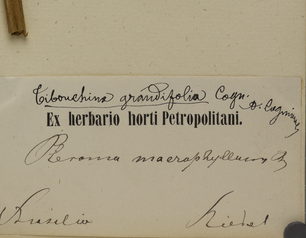 Tibouchina grandifolia Cogn.
A. Cogniaux
Ex herbario horti Petropolitani.
macrophyllum
Brasilia Riedel